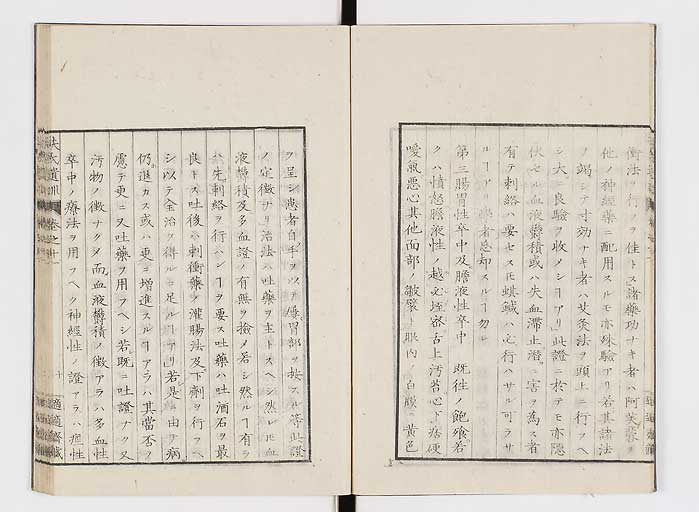 衝法ヲ行フヲ佳トス諸藥功ナキ者ハ阿芙蓉ヲ
他ノ神經藥ニ配用スルモ亦殊驗アリ若其諸法
ノ竭シテ寸効ナキ者ハ艾灸法ヲ頭上ニ行フヘ
シ大ニ良驗ヲ收メシヿアリ此證ニ於テモ亦隱
伏セル血液鬱積或ハ失血滯止潜ニ害ヲ為ス者
有テ刺絡ハ要セスモ蜞鍼ハ必行ハサル可ラサ
ルヿアリ學者忘却スルヿ勿レ
第三腸胃性卒中及膽液性卒中 既徃ノ飽餐若
クハ憤怒膽液性ノ越必垤密舌上汚苔心下痞硬
噯氣惡心其他面部ノ皺襞ト眼内ノ白膜ニ黄色
ヲ呈シ患者自手ヲ以テ 胃部ヲ按スル等此證
ノ定徴ナリ治法ハ吐藥ヲ主トスヘシ然レモ血
液鬱積及多血證ノ有無ヲ撿メ若シ然ルヿ有ラ
ハ先刺絡ヲ行ハンヿヲ要ス吐藥ハ吐酒石ヲ最
良トス吐後ハ刺衝藥ノ灌腸法及下劑ヲ行フヘ
シ以テ全治ヲ得ルニ足ルヿアリ若是ニ由テ病
仍進カス或ハ更ニ増進スルヿアラハ其當否ヲ
慮テ更ニ又吐藥ヲ用フヘシ若既ニ吐證ナク又
汚物ノ徴ナクタ 而血液鬱積ノ徴アラハ多血性
卒中ノ療法ヲ用フヘク神經性ノ證アラハ痙性
扶氏遺訓 卷之十一
十
適適齋藏